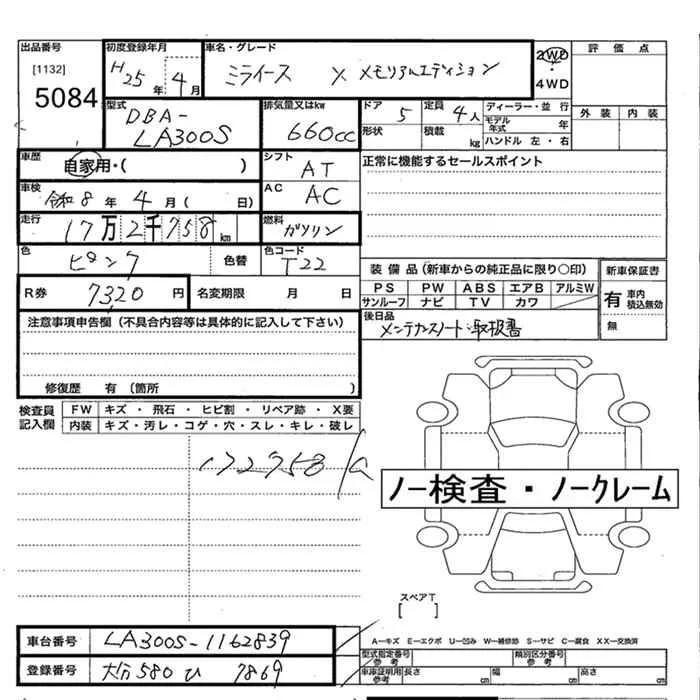 出品番号 初度登録年月 車名・グレード 評価点
[1132] H25年 4月 ミライース X メモリアルエディション 2WD・4WD
5084
型式 排気量又はkw ドア 定員 ディーラー・並行 外装 内装
DBA-LA300S 660cc 5 4人 モデル年式 年
形状 積載 kg ハンドル 左・右
車歴 自家用・( ) シフト AT 正常に機能するセールスポイント
車検 令和8年 4月( 日) AC AC
走行 17万2千758km 燃料 ガソリン
色 ピンク 色替 色コード T22
装備品(新車からの純正品に限り○印) 新車保証書
R券 7320円 名変期限 月 日 PS PW ABS エアB アルミW 有 車内積込無効
サンルーフ ナビ TV カワ 無
注意事項申告欄(不具合内容等は具体的に記入して下さい) 後日品 メンテナスノート・取扱書
修復歴 有 (箇所 )
検査員記入欄 FW キズ・飛石・ヒビ割・リペア跡・X要
内装 キズ・汚レ・コゲ・穴・スレ・キレ・破レ
172758
ノー検査・ノークレーム
スペアT
[ ]
車台番号 LA300S-1162839 A―キズ E―エクボ U―凹み W―補修跡 S―サビ C―腐食 XX―交換済
型式指定番号 参考 類別区分番号 参考
登録番号 大分580ひ 7869 車庫証明用参考 長さ cm 幅 cm 高さ cm